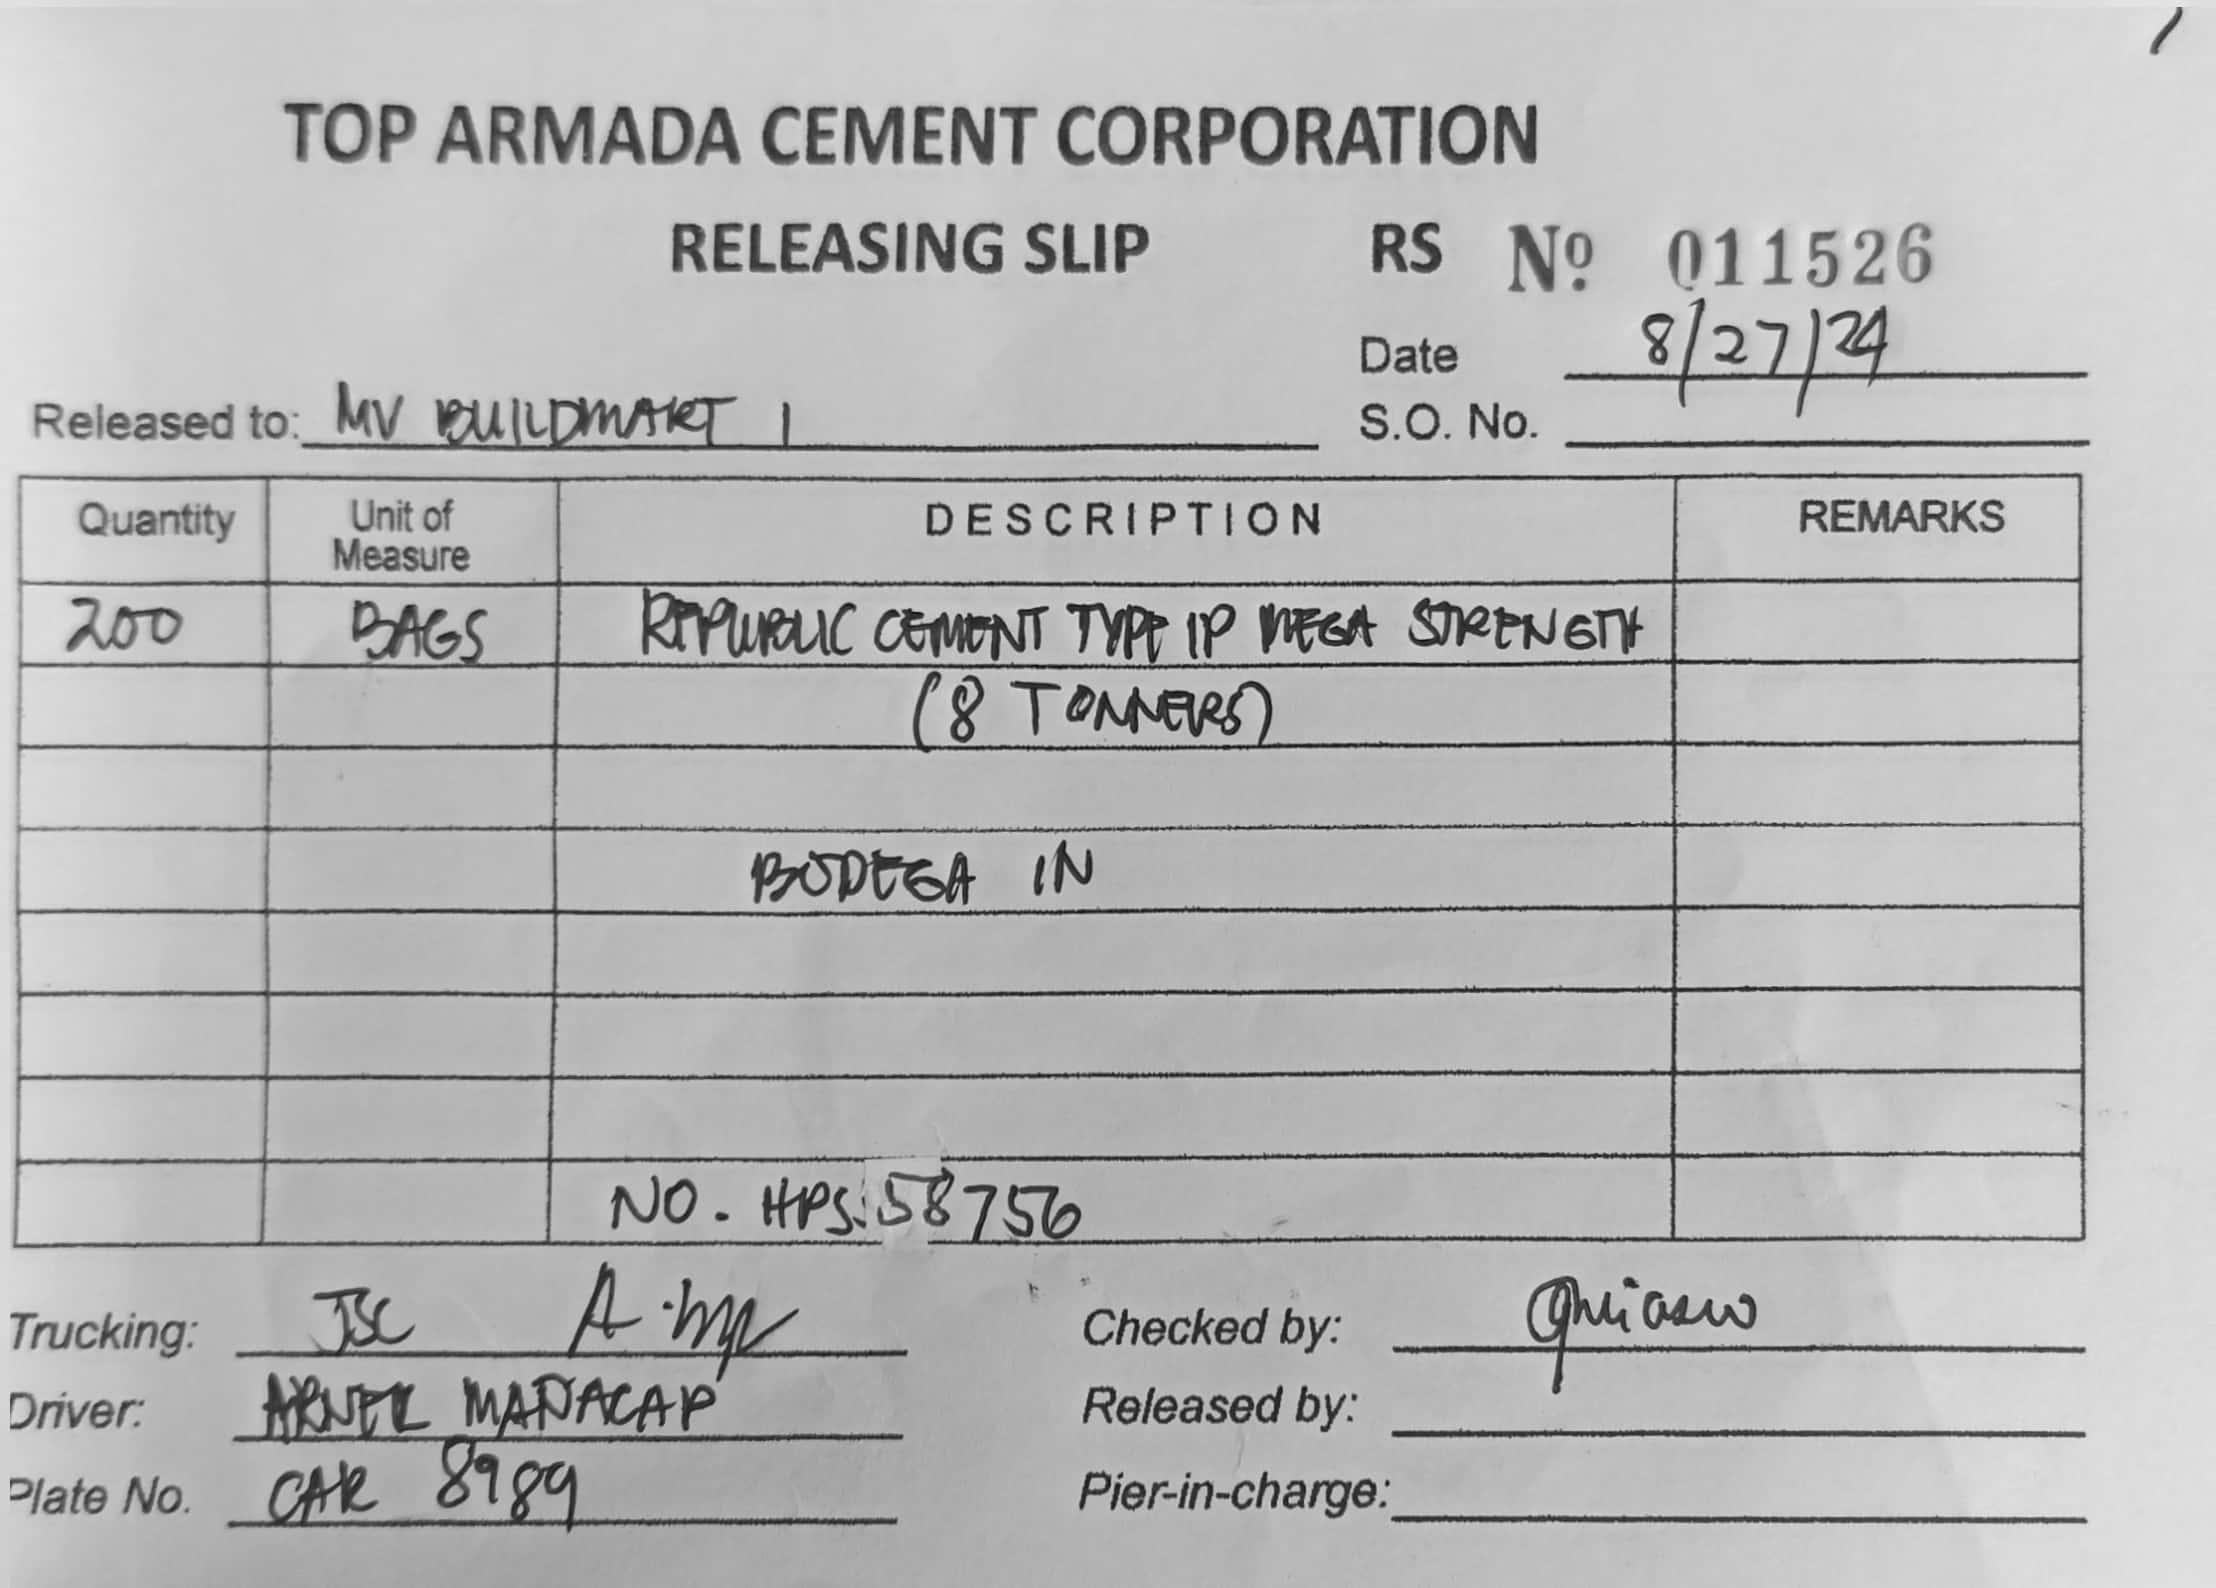 TOP ARMADA CEMENT CORPORATION
RELEASING SLIP RS Nº 011526
Date 8/27/24
Released to: MV BUILDMART 1
S.O. No.
Quantity Unit of Measure DESCRIPTION REMARKS
200 BAGS REPUBLIC CEMENT TYPE IP MEGA STRENGTH
(8 TONNERS)
BODEGA IN
NO. HPS: 58756
Trucking: JSC
Checked by:
Driver: ARNEL MANACAP
Released by:
Plate No. CAR 8989
Pier-in-charge: